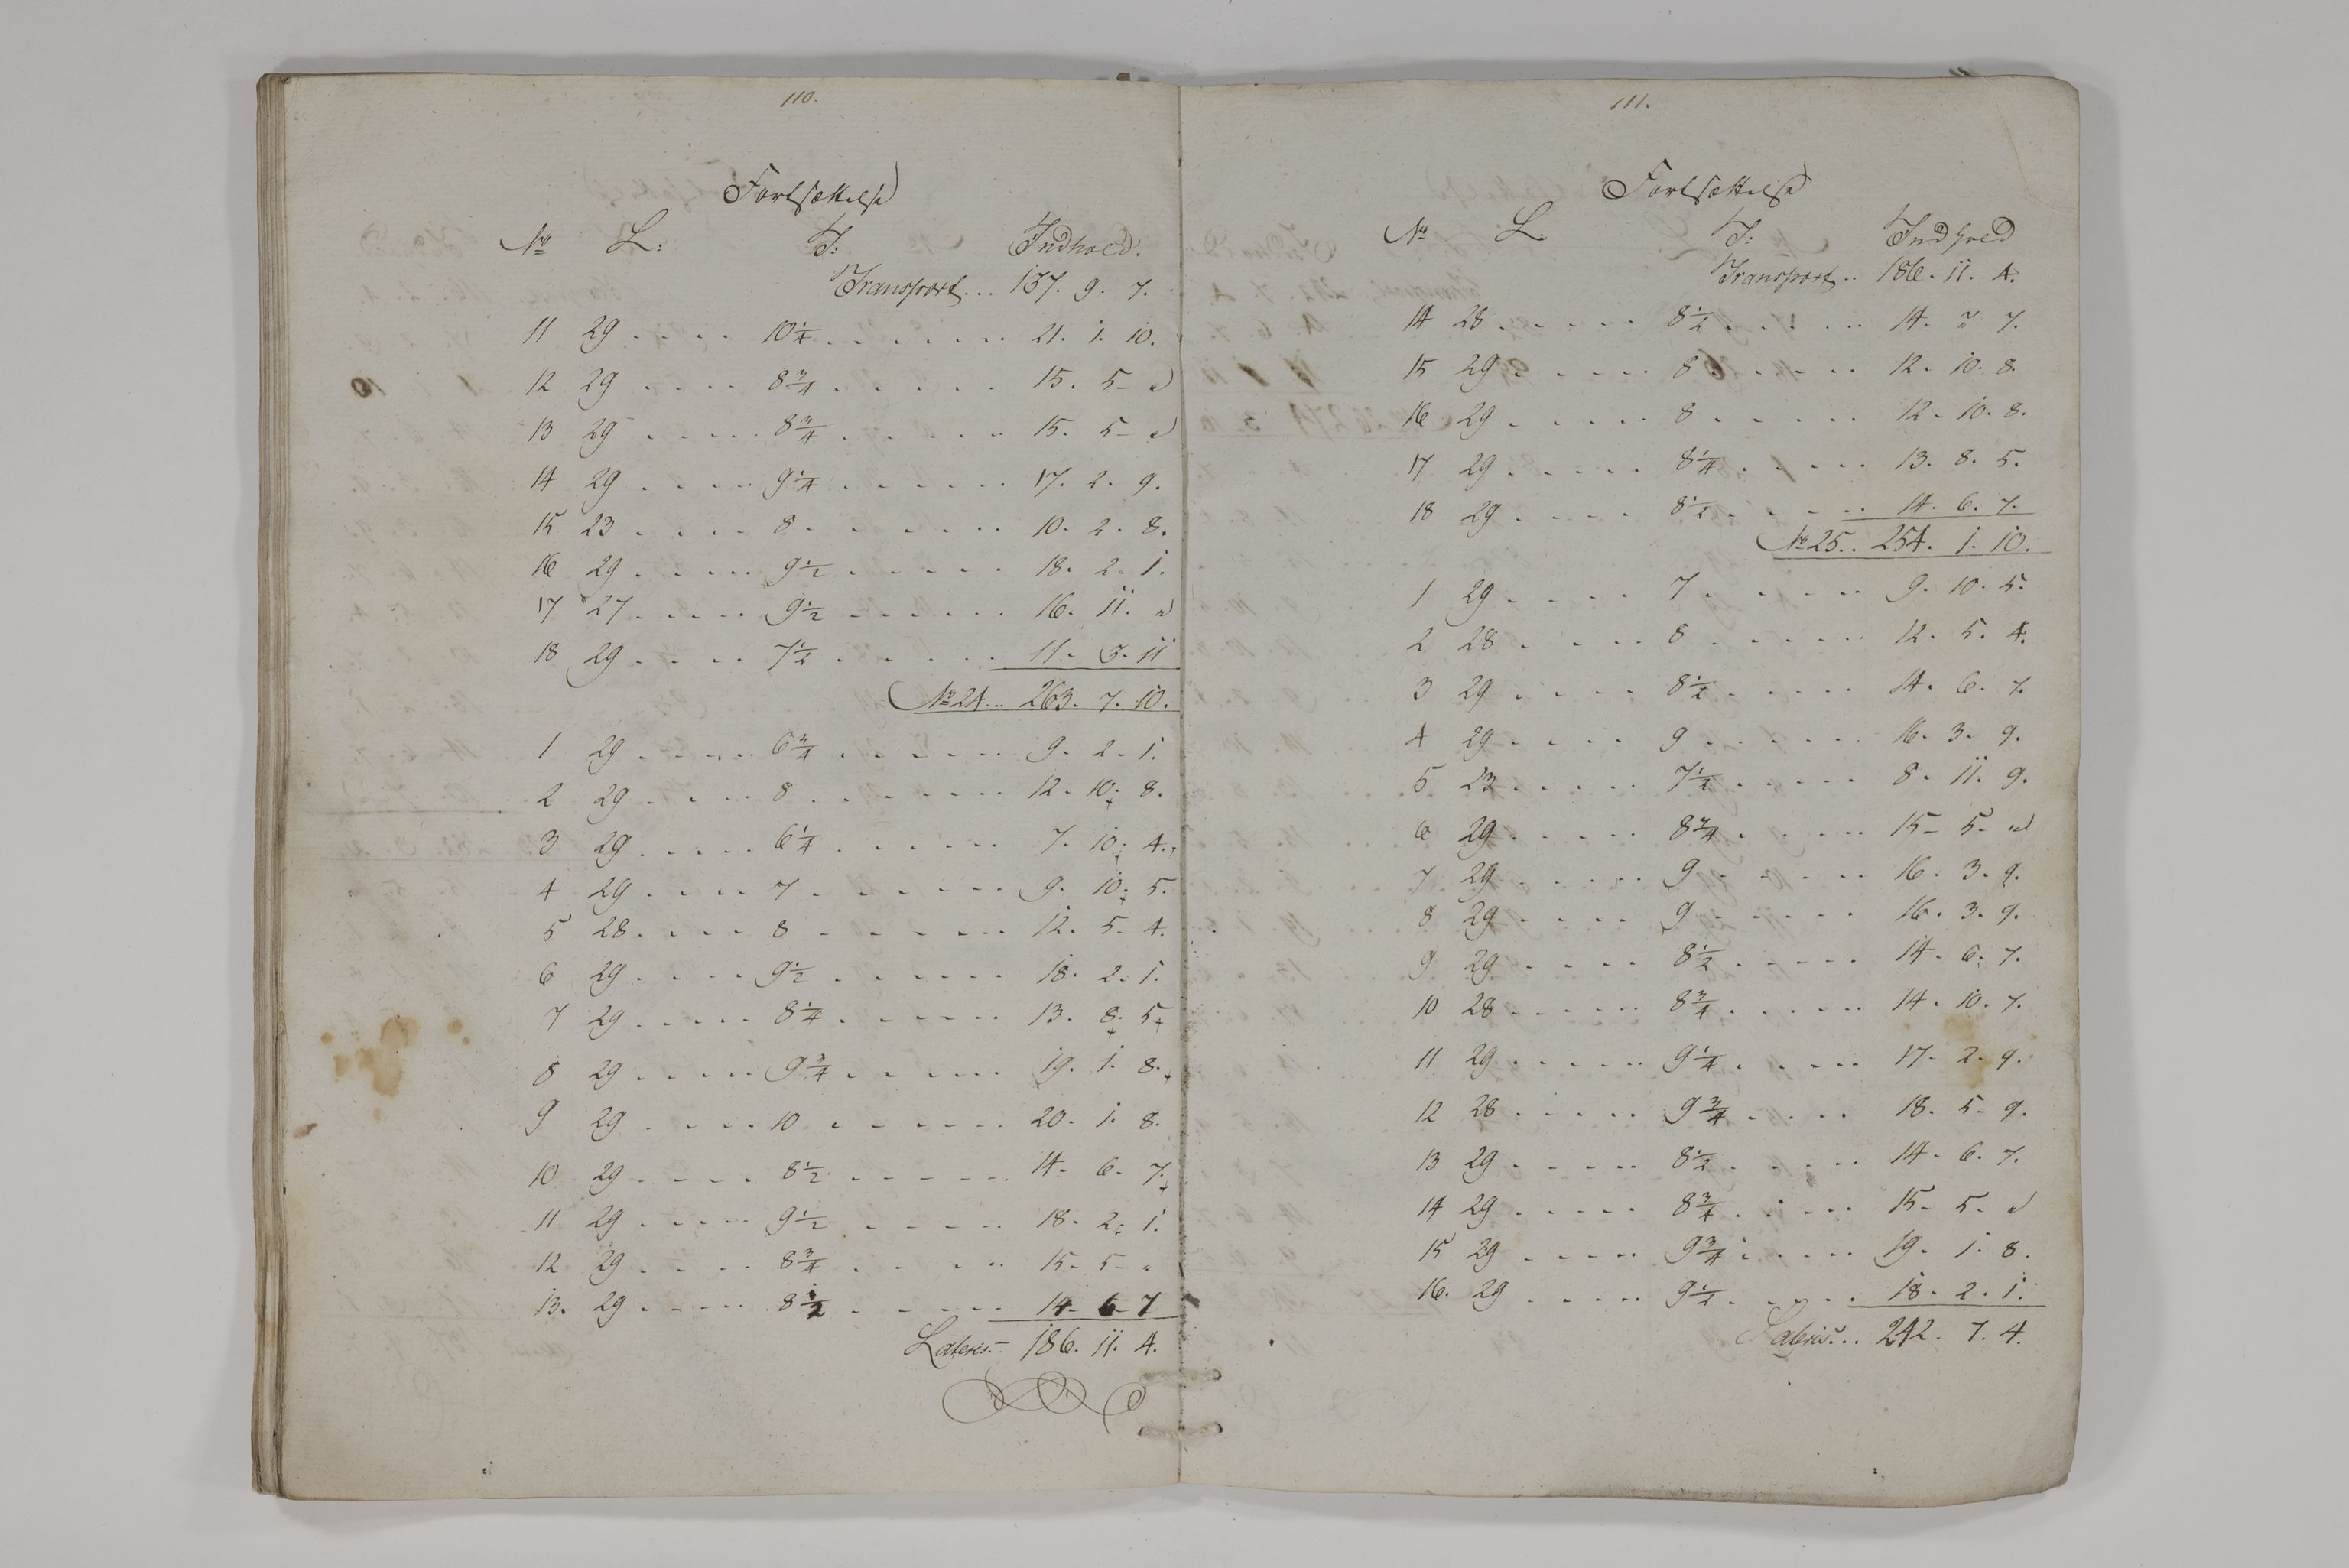 110.
Fortsættelse
No L: T: Indhold.
Transport... 137. 9. 7.
11 29 .... 10 1/4 ...... 21. 1. 10.
12 29 .... 8 3/4 ..... 15. 5 - "
13 29 .... 8 3/4 ..... 15. 5 - "
14 29 .... 9 1/4 ...... 17. 2. 9.
15 23 .... 8 ...... 10. 2. 8.
16 29 .... 9 1/2 ..... 18. 2. 1.
17 27 .... 9 1/2 ...... 16. 11. "
18 29 .... 7 1/2 ..... 11. 3. 11
No 24... 263. 7. 10.
1 29 .... 6 3/4 ..... 9. 2. 1.
2 29 .... 8 ...... 12. 10. 8.
3 29 .... 6 1/4 ...... 7. 10. 4.
4 29 .... 7 ...... 9. 10. 5.
5 28 .... 8 ..... 12. 5. 4.
6 29 .... 9 1/2 ..... 18. 2. 1.
7 29 .... 8 1/4 ..... 13. 8. 5.
8 29 .... 9 3/4 ..... 19. 1. 8.
9 29 .... 10 ..... 20. 1. 8.
10 29 .... 8 1/2 ..... 14. 6. 7.
11 29 .... 9 1/2 ..... 18. 2. 1.
12 29 .... 8 3/4 ..... 15. 5 - "
13. 29 .... 8 1/2 ..... 14. 6. 7
Lateris.. 186. 11. 4.
111.
Fortsættelse
No L. T: Indhold
Transport.. 186. 11. 4.
14 28 ..... 8 1/2 ..... 14. " 7.
15 29 ..... 8 ..... 12. 10. 8.
16 29 ..... 8 ..... 12. 10. 8.
17 29 ..... 8 1/4 ..... 13. 8. 5.
18 29 .... 8 1/2 ..... 14. 6. 7.
No 25.. 254. 1. 10.
1 29 .... 7 ..... 9. 10. 5.
2 28 .... 8 ..... 12. 5. 4.
3 29 .... 8 1/2 ..... 14. 6. 7.
4 29 .... 9 ..... 16. 3. 9.
5 23 ..... 7 1/2 ..... 8. 11. 9.
6 29 ..... 8 3/4 ..... 15. 5. "
7 29 ..... 9 ..... 16. 3. 9.
8 29 .... 9 ..... 16. 3. 9.
9 29 .... 8 1/2 ..... 14. 6. 7.
10 28 ..... 8 3/4 ..... 14. 10. 7.
11 29 ..... 9 1/4 ..... 17. 2. 9.
12 28 ..... 9 3/4 .... 18. 5. 9.
13 29 ..... 8 1/2 ..... 14. 6. 7.
14 29 ..... 8 3/4 ..... 15. 5. "
15 29 ..... 9 3/4 ..... 19. 1. 8.
16. 29 .... 9 1/2 ..... 18. 2. 1.
Lateris... 242. 7. 4.